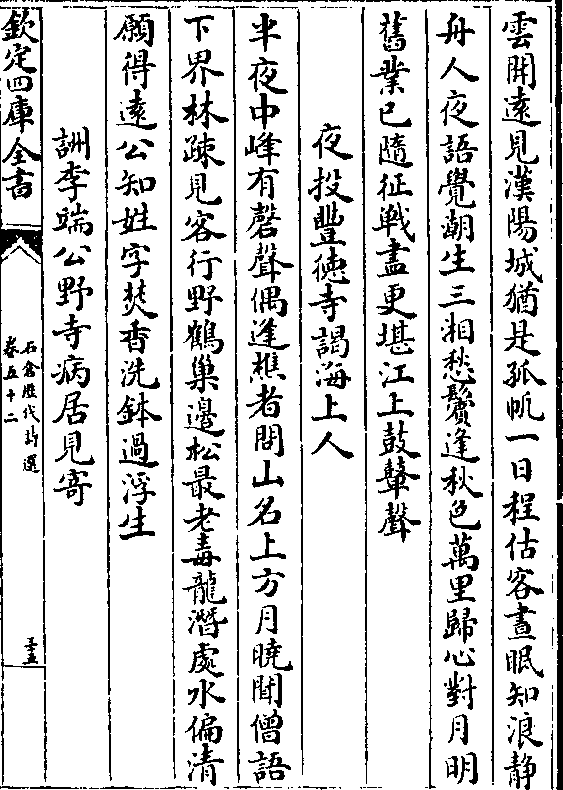 雲開遠見漢陽城猶是孤帆一日程估客晝眠知浪静
舟人夜語覺潮生三湘愁鬢逢秋色萬里歸心對月明
舊業已隨征戰盡更堪江上鼓鼙聲
夜投豐徳寺謁海上人
半夜中峰有磬聲偶逢樵者問山名上方月曉聞僧語
下界林疎見客行野鶴巢邉松最老毒龍潛處水偏清
願得逺公知姓字焚香洗鉢過浮生
詶李端公野寺病居見寄
欽定四庫全書
石倉歴代詩選
卷五十二
三五